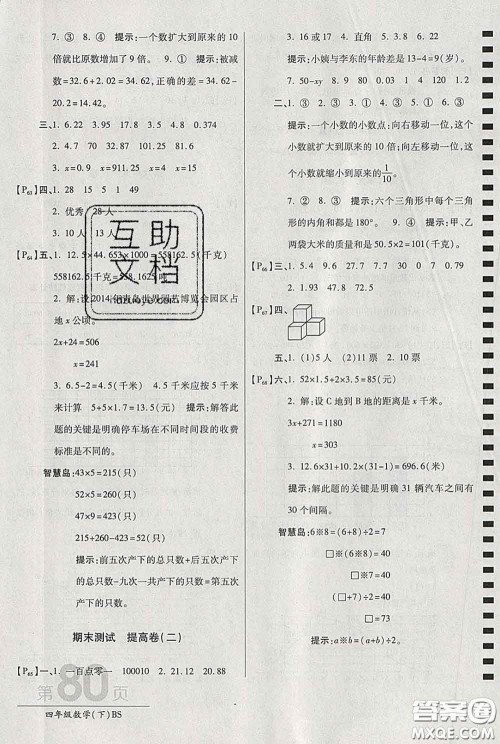 7. ③　8. ④　提示:一个数扩大到原来的 10
倍就比原数增加了 9 倍。　9. ①　提示:被减
数=32.6+2.02=34.62,正确的差=34.62-
20.2=14.42。
三、1. 6.22　3.95　4.91　8.2　0.374
3. x=0.9　x=911.25　x=4
【P₆₄】四、1. 28　15　5　1　49
2. 优秀　28 人
10 人　13 人
【P₆₅】五、1. 12.5×44.653×1000=558162.5(千克)
558162.5(千克)
2. 解:设 2014
占地 x 公顷。
2x+24=506
x=241
3. 6.5-2=4.5(千米)　4.5 千米应按 5 千米
来计算　5+5×1.7=13.5(元)　提示:解答此
题的关键是明确停车场在不同时间的收费
标准是不同的。
智慧岛:43×5=215(只)
52×5=260(只)
47×9=423(只)
215+260-423=52(只)
提示:前五次产下的总只数+后五次产下
的总只数-九次一共产下的只数=第五次
产下的只数。
期末测试　提高卷(二)
【P₆₅】一、1. 一百点零一　100010　2. 21.12　20.88
第80页
四年级数学(下)BS
3. 16 或 17　4. 直角　5. x+3
6. 13　提示:小姨与李东的年龄差是 13-4=9(岁)。
7. 50-xy　8. 9.380　9. 9.6
二、1. ③　2. ④　3. ②　4. ①　5. ①　6. ③
提示:一个小数的小数点:向右移动一位,这个
小数就扩大到原来的 10 倍;向左移动一位,这
个小数就缩小到原来的1/10。
7. ③　8. ①　提示:六个三角形中每个三角形
的内角和都是 180°。　9. ②　提示:甲、乙
两袋大米的质量和是 50.5×2=101(千克)。
【P₆₆】三、1. 5.4　9.6　27.7　30　7　0　0.79
【P₆₇】四、
五、1. (1)5 人　(2)11 票　2. 10 票
【P₆₈】六、1. 52×1.5+2×3.5=85(元)
2. 解:设 C 地到 B 地的距离是 x 千米。
3x-32=271
x=303
3. 12.6×10+2×30=186(米)
提示:解此题的关键是明确 31 辆汽车之间有
30 个间隔。
智慧岛:6※8=(6+8)÷2=7
□※7=(□+7)÷2
□※6※8=40
(□+7)÷2=40
□=73
提示:a※b=(a+b)÷2
互助
文档
答案圈
MXQE.COM